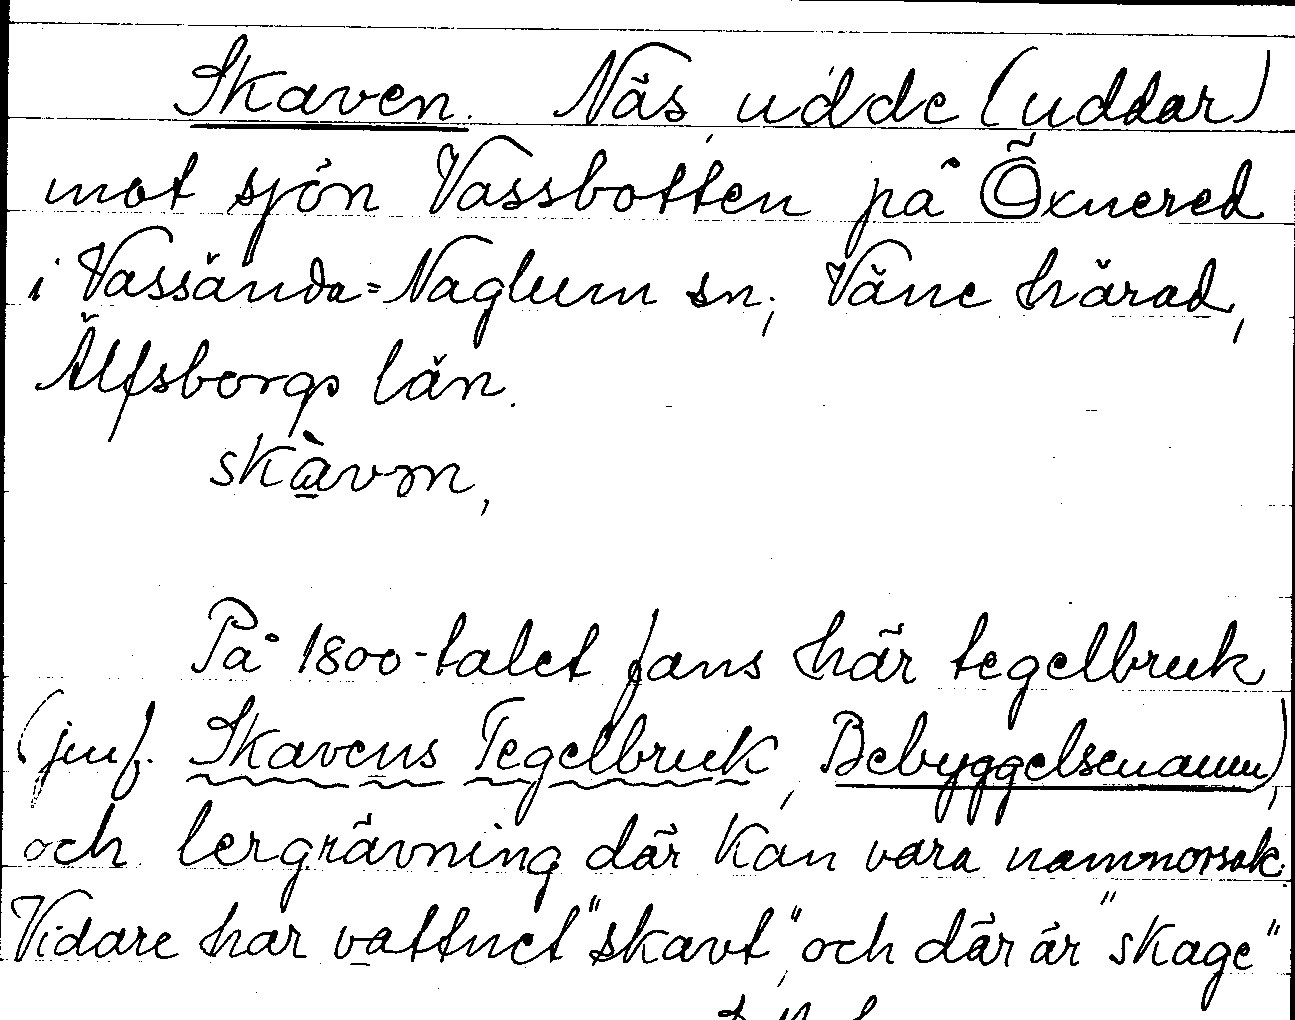 Skaven. Näs, udde (uddar)
mot sjön Vassbotten på Öxnered
i Vassända=Naglum sn; Väne härad,
Älfsborgs län.
skàvm,
På 1800-talet fans här tegelbruk
(jmf. Skavens Tegelbruk, Bebyggelsenamn),
och lergrävning där kan vara namnorsak.
Vidare har vattnet "skavt", och där är "skage"